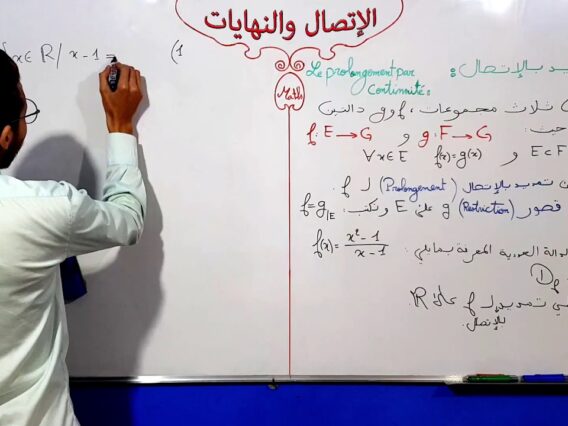 الإتصال والنهايات
Maths
بالإتصال :
Le prolongement par
Continuité :
ثلاث مجموعات، f و g دالتين
حيث :
f : E → G و g : F → G
E ⊂ F و f(x) = g(x) ∀x ∈ E
تمديد بالإتصال (Prolongement) لـ f.
قصور (Restriction) g على E ونكتب : f = g|E
الدالة العددية المعرفة بمايلي : f(x) = x² - 1 / x - 1
Df
تمديد لـ f على R
بالإتصال.
(1
x ∈ R / x - 1 =